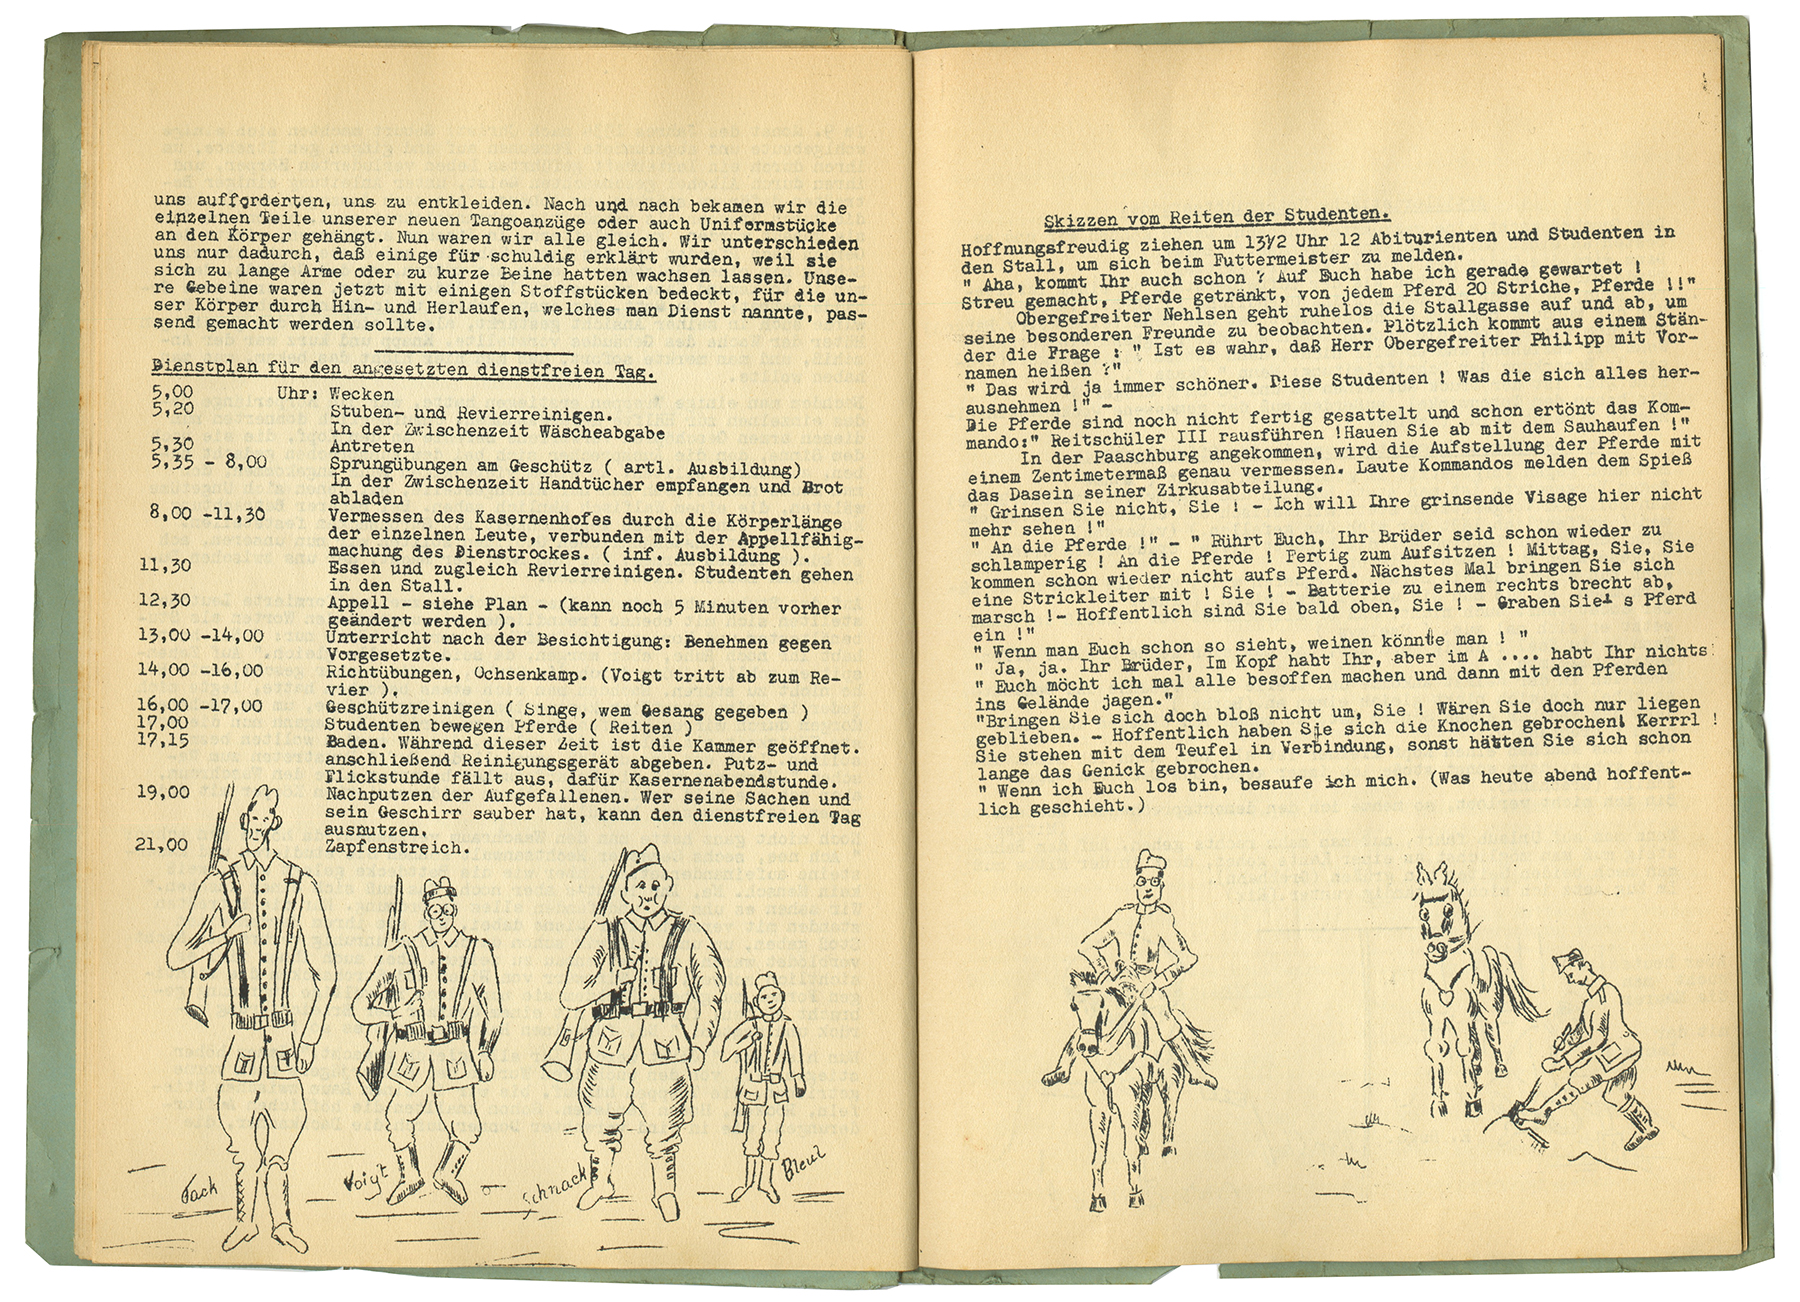 uns aufforderten, uns zu entkleiden. Nach und nach bekamen wir die
einzelnen Teile unserer neuen Tangoanzüge oder auch Uniformstücke
an den Körper gehängt. Nun waren wir alle gleich. Wir unterschieden
uns nur dadurch, daß einige für schuldig erklärt wurden, weil sie
sich zu lange Arme oder zu kurze Beine hatten wachsen lassen. Unse-
re Gebeine waren jetzt mit einigen Stoffstücken bedeckt, für die un-
ser Körper durch Hin- und Herlaufen, welches man Dienst nannte, pas-
send gemacht werden sollte.
Dienstplan für den angesetzten dienstfreien Tag.
5,00 Uhr: Wecken
5,20 Stuben- und Revierreinigen.
In der Zwischenzeit Wäscheabgabe
5,30 Antreten
5,35 - 8,00 Sprungübungen am Geschütz ( artl. Ausbildung)
In der Zwischenzeit Handtücher empfangen und Brot
abladen
8,00 -11,30 Vermessen des Kasernenhofes durch die Körperlänge
der einzelnen Leute, verbunden mit der Appellfähig-
machung des Dienstrockes. ( inf. Ausbildung ).
11,30 Essen und zugleich Revierreinigen. Studenten gehen
in den Stall.
12,30 Appell - siehe Plan - (kann noch 5 Minuten vorher
geändert werden ).
13,00 -14,00 Unterricht nach der Besichtigung: Benehmen gegen
Vorgesetzte.
14,00 -16,00 Richtübungen, Ochsenkamp. (Voigt tritt ab zum Re-
vier ).
16,00 -17,00 Geschützreinigen ( Singe, wem Gesang gegeben )
17,00 Studenten bewegen Pferde ( Reiten )
17,15 Baden. Während dieser Zeit ist die Kammer geöffnet.
anschließend Reinigungsgerät abgeben. Putz- und
Flickstunde fällt aus, dafür Kasernenabendstunde.
19,00 Nachputzen der Aufgefallenen. Wer seine Sachen und
sein Geschirr sauber hat, kann den dienstfreien Tag
ausnutzen.
21,00 Zapfenstreich.
Voigt
Schnack
Bleul
Skizzen vom Reiten der Studenten.
Hoffnungsfreudig ziehen um 13½ Uhr 12 Abiturienten und Studenten in
den Stall, um sich beim Futtermeister zu melden.
" Aha, kommt Ihr auch schon ? Auf Euch habe ich gerade gewartet !
Streu gemacht, Pferde getränkt, von jedem Pferd 20 Striche, Pferde !!"
Obergefreiter Nehlsen geht ruhelos die Stallgasse auf und ab, um
seine besonderen Freunde zu beobachten. Plötzlich kommt aus einem Stän-
der die Frage : " Ist es wahr, daß Herr Obergefreiter Philipp mit Vor-
namen heißen ?"
" Das wird ja immer schöner. Diese Studenten ! Was die sich alles her-
ausnehmen !" -
Die Pferde sind noch nicht fertig gesattelt und schon ertönt das Kom-
mando:" Reitschüler III rausführen !Hauen Sie ab mit dem Sauhaufen !"
In der Paaschburg angekommen, wird die Aufstellung der Pferde mit
einem Zentimetermaß genau vermessen. Laute Kommandos melden dem Spieß
das Dasein seiner Zirkusabteilung.
" Grinsen Sie nicht, Sie ! - Ich will Ihre grinsende Visage hier nicht
mehr sehen !"
" An die Pferde !" - " Rührt Euch, Ihr Brüder seid schon wieder zu
schlamperig ! An die Pferde ! Fertig zum Aufsitzen ! Mittag, Sie, Sie
kommen schon wieder nicht aufs Pferd. Nächstes Mal bringen Sie sich
eine Strickleiter mit ! Sie ! - Batterie zu einem rechts brecht ab,
marsch !- Hoffentlich sind Sie bald oben, Sie ! - Graben Sie' s Pferd
ein !"
" Wenn man Euch schon so sieht, weinen könnte man ! "
" Ja, ja. Ihr Brüder, Im Kopf habt Ihr, aber im A .... habt Ihr nichts
" Euch möcht ich mal alle besoffen machen und dann mit den Pferden
ins Gelände jagen."
"Bringen Sie sich doch bloß nicht um, Sie ! Wären Sie doch nur liegen
geblieben. - Hoffentlich haben Sie sich die Knochen gebrochen! Kerrrl !
Sie stehen mit dem Teufel in Verbindung, sonst hätten Sie sich schon
lange das Genick gebrochen.
" Wenn ich Euch los bin, besaufe ich mich. (Was heute abend hoffent-
lich geschieht.)